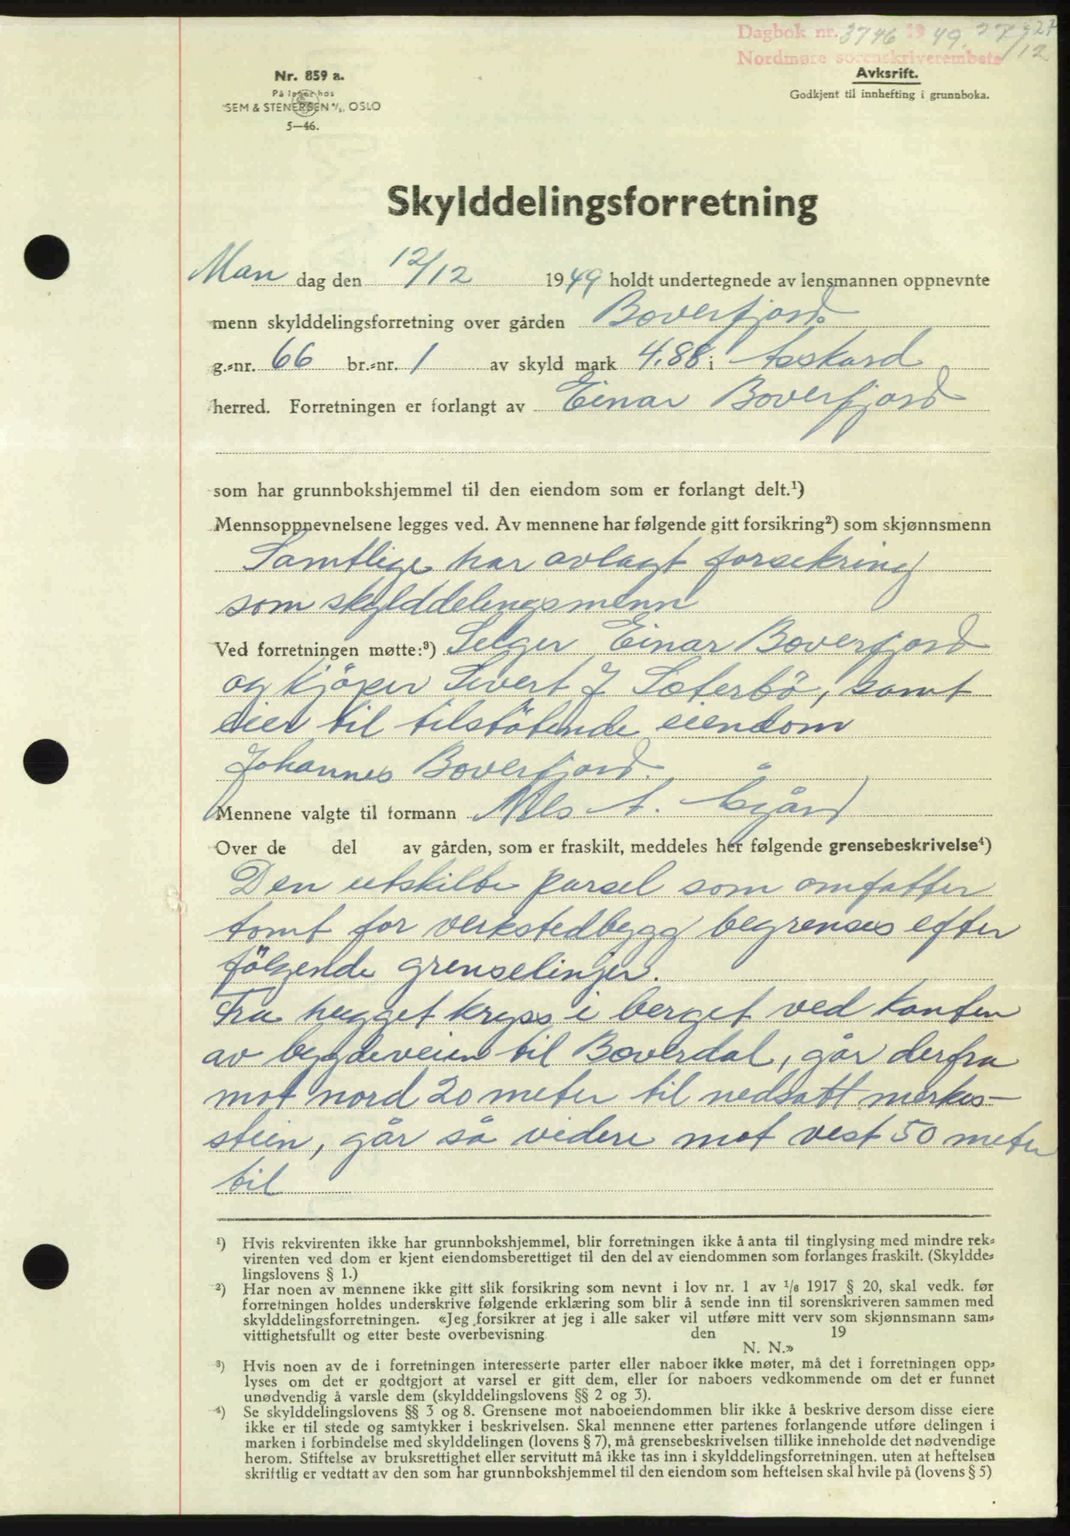 Dagbok nr. 3746 1949. 27/12
Nordmøre sorenskriverembete
Nr. 859 a.
På lager hos
SEM & STENERSEN A/S, OSLO
5—46.
Avksrift.
Godkjent til innhefting i grunnboka.
Skylddelingsforretning
Man dag den 12/12 1949 holdt undertegnede av lensmannen oppnevnte
menn skylddelingsforretning over gården Boverfjord
g.-nr. 66 br.-nr. 1 av skyld mark 4.88 i Åsskard
herred. Forretningen er forlangt av Einar Boverfjord
som har grunnbokshjemmel til den eiendom som er forlangt delt.¹)
Mennsoppnevnelsene legges ved. Av mennene har følgende gitt forsikring²) som skjønnsmenn
Samtlige har avlagt forsikring
som skylddelingsmenn
Ved forretningen møtte:³) Selger Einar Boverfjord
og kjöper Sivert J Sæterbö, samt
eier til tilstötende eiendom
Johannes Boverfjord.
Mennene valgte til formann Nils A.
Over de del av gården, som er fraskilt, meddeles her følgende grensebeskrivelse⁴)
Den utskilte parsel som omfatter
tomt for verkstedbygg begrenses efter
fölgende grenselinjer.
Fra hugget kryss i berget ved kanten
av bygdeveien til Bæverdal, går derfra
mot nord 20 meter til nedsatt merkes-
stein, går så videre mot vest 50 meter
til
¹) Hvis rekvirenten ikke har grunnbokshjemmel, blir forretningen ikke å anta til tinglysing med mindre rek-
virenten ved dom er kjent eiendomsberettiget til den del av eiendommen som forlanges fraskilt. (Skyldde-
lingslovens § 1.)
²) Har noen av mennene ikke gitt slik forsikring som nevnt i lov nr. 1 av 1/6 1917 § 20, skal vedk. før
forretningen holdes underskrive følgende erklæring som blir å sende inn til sorenskriveren sammen med
skylddelingsforretningen. «Jeg forsikrer at jeg i alle saker vil utføre mitt verv som skjønnsmann sam-
vittighetsfullt og etter beste overbevisning den 19
N. N.»
³) Hvis noen av de i forretningen interesserte parter eller naboer ikke møter, må det i forretningen opp-
lyses om det er godtgjort at varsel er gitt dem, eller for naboers vedkommende om det er funnet
unødvendig å varsle dem (skylddelingslovens §§ 2 og 3).
⁴) Se skylddelingslovens §§ 3 og 8. Grensene mot naboeiendommen blir ikke å beskrive dersom disse eiere
ikke er til stede og samtykker i beskrivelsen. Skal mennene etter partenes forlangende utføre delingen i
marken i forbindelse med skylddelingen (lovens § 7), må grensebeskrivelsen tillike inneholde det nødvendige
herom. Stiftelse av bruksrettighet eller servitutt må ikke tas inn i skylddelingsforretningen. uten at heftelsen
skriftlig er vedtatt av den som har grunnbokshjemmel til den eiendom som heftelsen skal hvile på (lovens § 5)